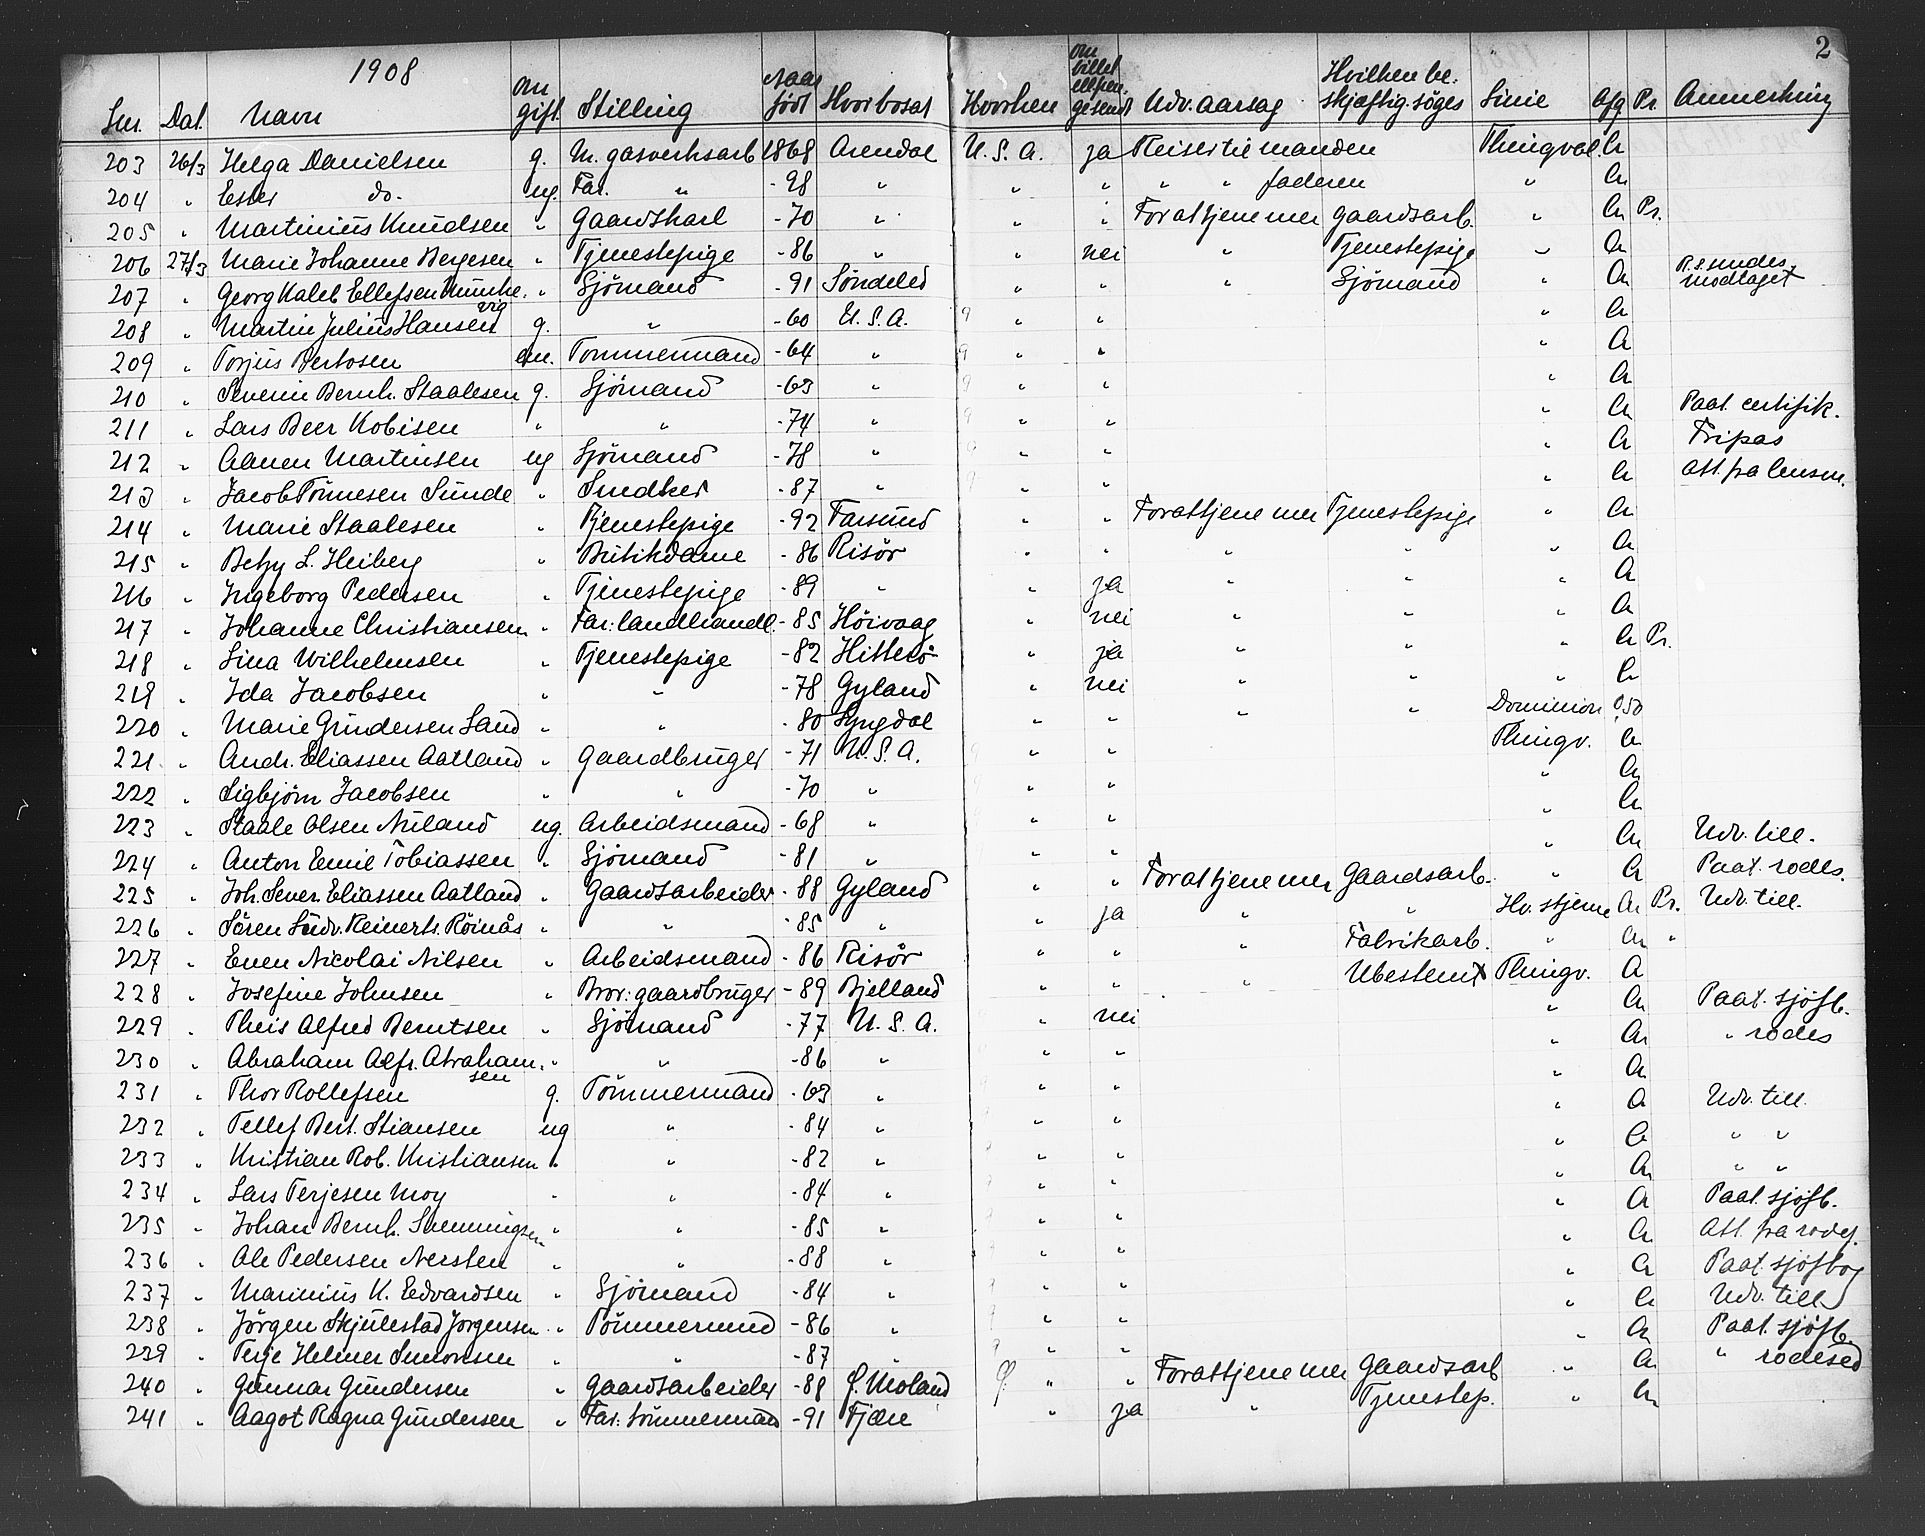 1908
2
Lnr. Dat. Navn Om gift. Stilling Naar født Hvor bosat Hvorhen Om billet ell. pen. gesendt Udv. aarsag Hvilken be- skjæftig. søges Linie Afg Pr. Anmerkning
203 26/3 Helga Danielsen g. M. gasverksarb 1868 Arendal U.S.A. ja Reiser til manden Thingval. A
204 " Ester do. ug. Far. " -98 " " " " " faderen " A
205 " Martinius Knudsen " Gaardskarl -70 " " " For at tjene mer gaardsarb. " A Pr.
206 27/3 Marie Johanne Bergesen " Tjenestepige -86 " " nei " Tjenestepige " A
207 " Georg Kaleb Ellefsen Munke- vig " Sjömand -91 Söndeled " " " Sjömand " A modtaget
208 " Martin Julius Hansen g. " -60 U.S.A. " " " A
209 " Torjus Bertosen em. Tømmermand -64 " " " " A
210 " Severin Bernh. Staalesen g. Sjömand -63 " " " " A
211 " Lars Beer Kobisen " " -74 " " " " A Paat. certifik.
212 " Aanen Martinsen ug Sjömand -78 " " " " A Fripas
213 " Jacob Tönnesen Sunde " Snedker -87 " " " " A Att. fra lensm.
214 " Marie Staalesen " Tjenestepige -92 Farsund " " For at tjene mer Tjenestepige " A
215 " Betzy L. Heiberg " Butikdame -86 Risör " " " " " A
216 " Ingeborg Pedersen " Tjenestepige -89 " " ja " " " A
217 " Johanne Christiansen " Far: landhandl. -85 Höivaag " nei " " " A
218 " Lina Wilhelmsen " Tjenestepige -82 Hitterö " ja " " " A Pr.
219 " Ida Jacobsen " " -78 Gyland " nei " " " A
220 " Marie Gundersen Sand " " -80 Lyngdal " " " " Dominion 0,50
221 " Andr. Eliassen Aatland " Gaardbruger -71 U.S.A. " " Thingv. A
222 " Sigbjörn Jacobsen " " -70 " " " " A
223 " Staale Olsen Nuland ug. Arbeidsmand -68 " " " " A
224 " Anton Emil Tobiassen " Sjömand -81 " " " " A Udv. till.
225 " Joh. Sever. Eliassen Aatland " Gaardsarbeider -88 Gyland " " For at tjene mer Gaardsarb. " A Paat. rodes.
226 " Sören Ludv. Reinerts. Röinås " " -85 " " ja " " Hv. stjerne A Pr. Udv. till.
227 " Even Nicolai Nilsen " Arbeidsmand -86 Risör " " " Fabrikarb. " A "
228 " Josefine Johnsen " Bror: gaardbruger -89 Bjelland " " " Ubestemt Thingv. A
229 " Theis Alfred Berntsen " Sjömand -77 U.S.A. " nei " A Paat. sjöfb.
230 " Abraham Alfr. Abraham- sen " " -86 " " " " A " rodes
231 " Thor Rollefsen g. Tömmermand -63 " " " " A
232 " Tellef Bert. Stiansen ug " -84 " " " " A Udv. till.
233 " Kristian Rob. Kristiansen " " -82 " " " " A " "
234 " Lars Terjesen Moy " " -84 " " " " A " "
235 " Johan Bernh. Svenningsen " " -85 " " " " A Paat. sjöfb.
236 " Ole Pedersen Nersten " " -88 " " " " A Att. fra rodef.
237 " Marinius K. Edvardsen " Sjömand -84 " " " " A Paat. sjöfbog
238 " Jörgen Skjulestad Jorgensen " Tömmermd -86 " " " " A Udv. till
239 " Terje Helmer Simonsen " " -87 " " " " A Paat. sjöfb.
240 " Gunnar Gundersen " Gaardsarbeider -88 Ø. Moland " " For at tjene mer Gaardsarb " A " rodesed
241 " Aagot Ragna Gundersen " Far: tömmermand -91 Fjære " ja " Tjenestep. " A